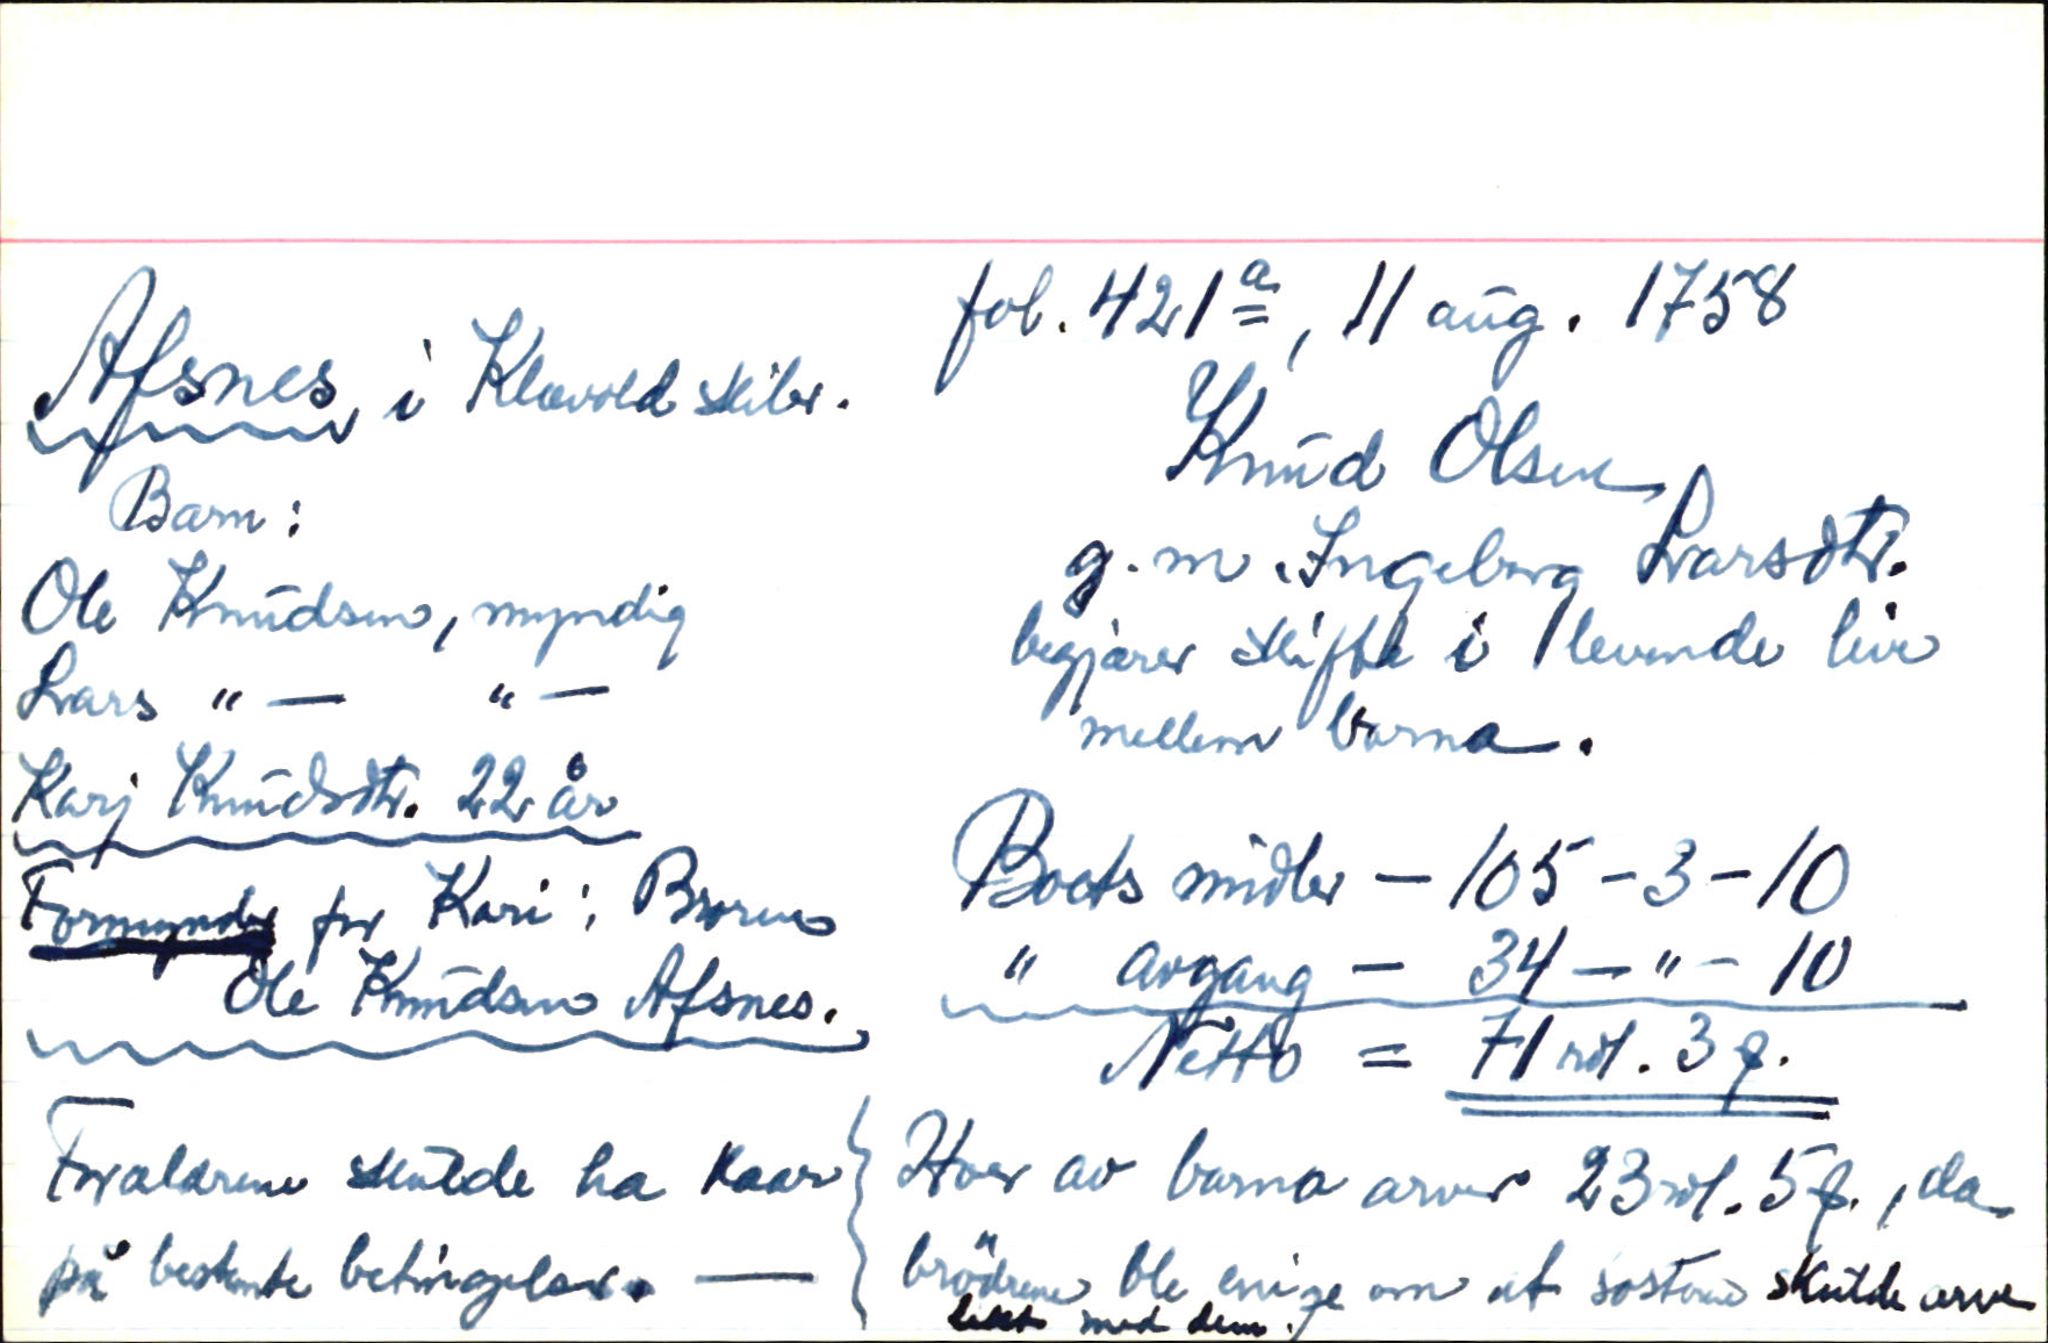 fol. 421ª, 11 aug. 1758
Afsnes, i Klævold skibr.
Knud Olsen
g. m. Ingeborg Larsdtr.
begjærer skifte i levende live
mellem barna.
Barn:
Ole Knudsen, myndig
Lars " — " —
Karj Knudsdtr. 22 år
Formynder for Kari: Broren
Ole Knudsen Afsnes.
Boets midler — 105 - 3 - 10
" avgang — 34 — " - 10
Netto = 71 rdl. 3 q.
Forældrene skulde ha kaar
på bestemte betingelser. —
Hver av barna arver 23 rdl. 5 q., da
brödrene ble enige om at söstrene skulde arve
likt med dem.